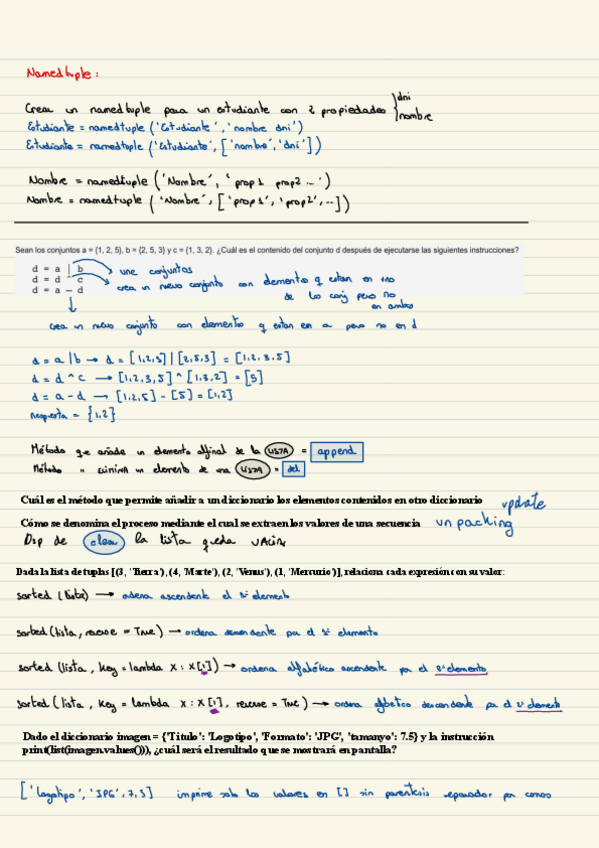 Namedtuple:
Crear un namedtuple para un estudiante con 2 propiedades } dni
nombre
Estudiante = namedtuple ('Estudiante', 'nombre dni')
Estudiante = namedtuple ('Estudiante', ['nombre', 'dni'])
Nombre = namedtuple ('Nombre', 'prop1 prop2 ...')
Nombre = namedtuple ('Nombre', ['prop1', 'prop2', ...])
Sean los conjuntos a = {1, 2, 5}, b = {2, 5, 3} y c = {1, 3, 2}. ¿Cuál es el contenido del conjunto d después de ejecutarse las siguientes instrucciones?
d = a | b → une conjuntos
d = d ^ c → crea un nuevo conjunto con elementos q estan en uno
de los conj pero no
en ambos
d = a - d
crea un nuevo conjunto con elementos q estan en a pero no en d
d = a | b → d = [1,2,5] | [2,5,3] = [1,2,3,5]
d = d ^ c → [1,2,3,5] ^ [1,3,2] = [5]
d = a - d → [1,2,5] - [5] = [1,2]
respuesta = {1,2}
Método que añade un elemento al final de la LISTA = append
Método = elimina un elemento de una LISTA = del
Cuál es el método que permite añadir a un diccionario los elementos contenidos en otro diccionario update
Cómo se denomina el proceso mediante el cual se extraen los valores de una secuencia unpacking
Dsp de clear la lista queda vacía
Dada la lista de tuplas [(3, 'Tierra'), (4, 'Marte'), (2, 'Venus'), (1, 'Mercurio')], relaciona cada expresión con su valor:
sorted (lista) → ordena ascendente el 1er elemento
sorted (lista, reverse = True) → ordena descendente por el 1er elemento
sorted (lista, key = lambda x : x[1]) → ordena alfabético ascendente por el 2º elemento
sorted (lista, key = lambda x : x[1], reverse = True) → ordena alfbetico descendente por el 2º elemento
Dado el diccionario imagen = {'Titulo': 'Logotipo', 'Formato': 'JPG', 'tamanyo': 7.5} y la instrucción
print(list(imagen.values())), ¿cuál será el resultado que se mostrará en pantalla?
['logotipo', 'JPG', 7,5] imprime solo los valores en [] sin parentesis separador por comas